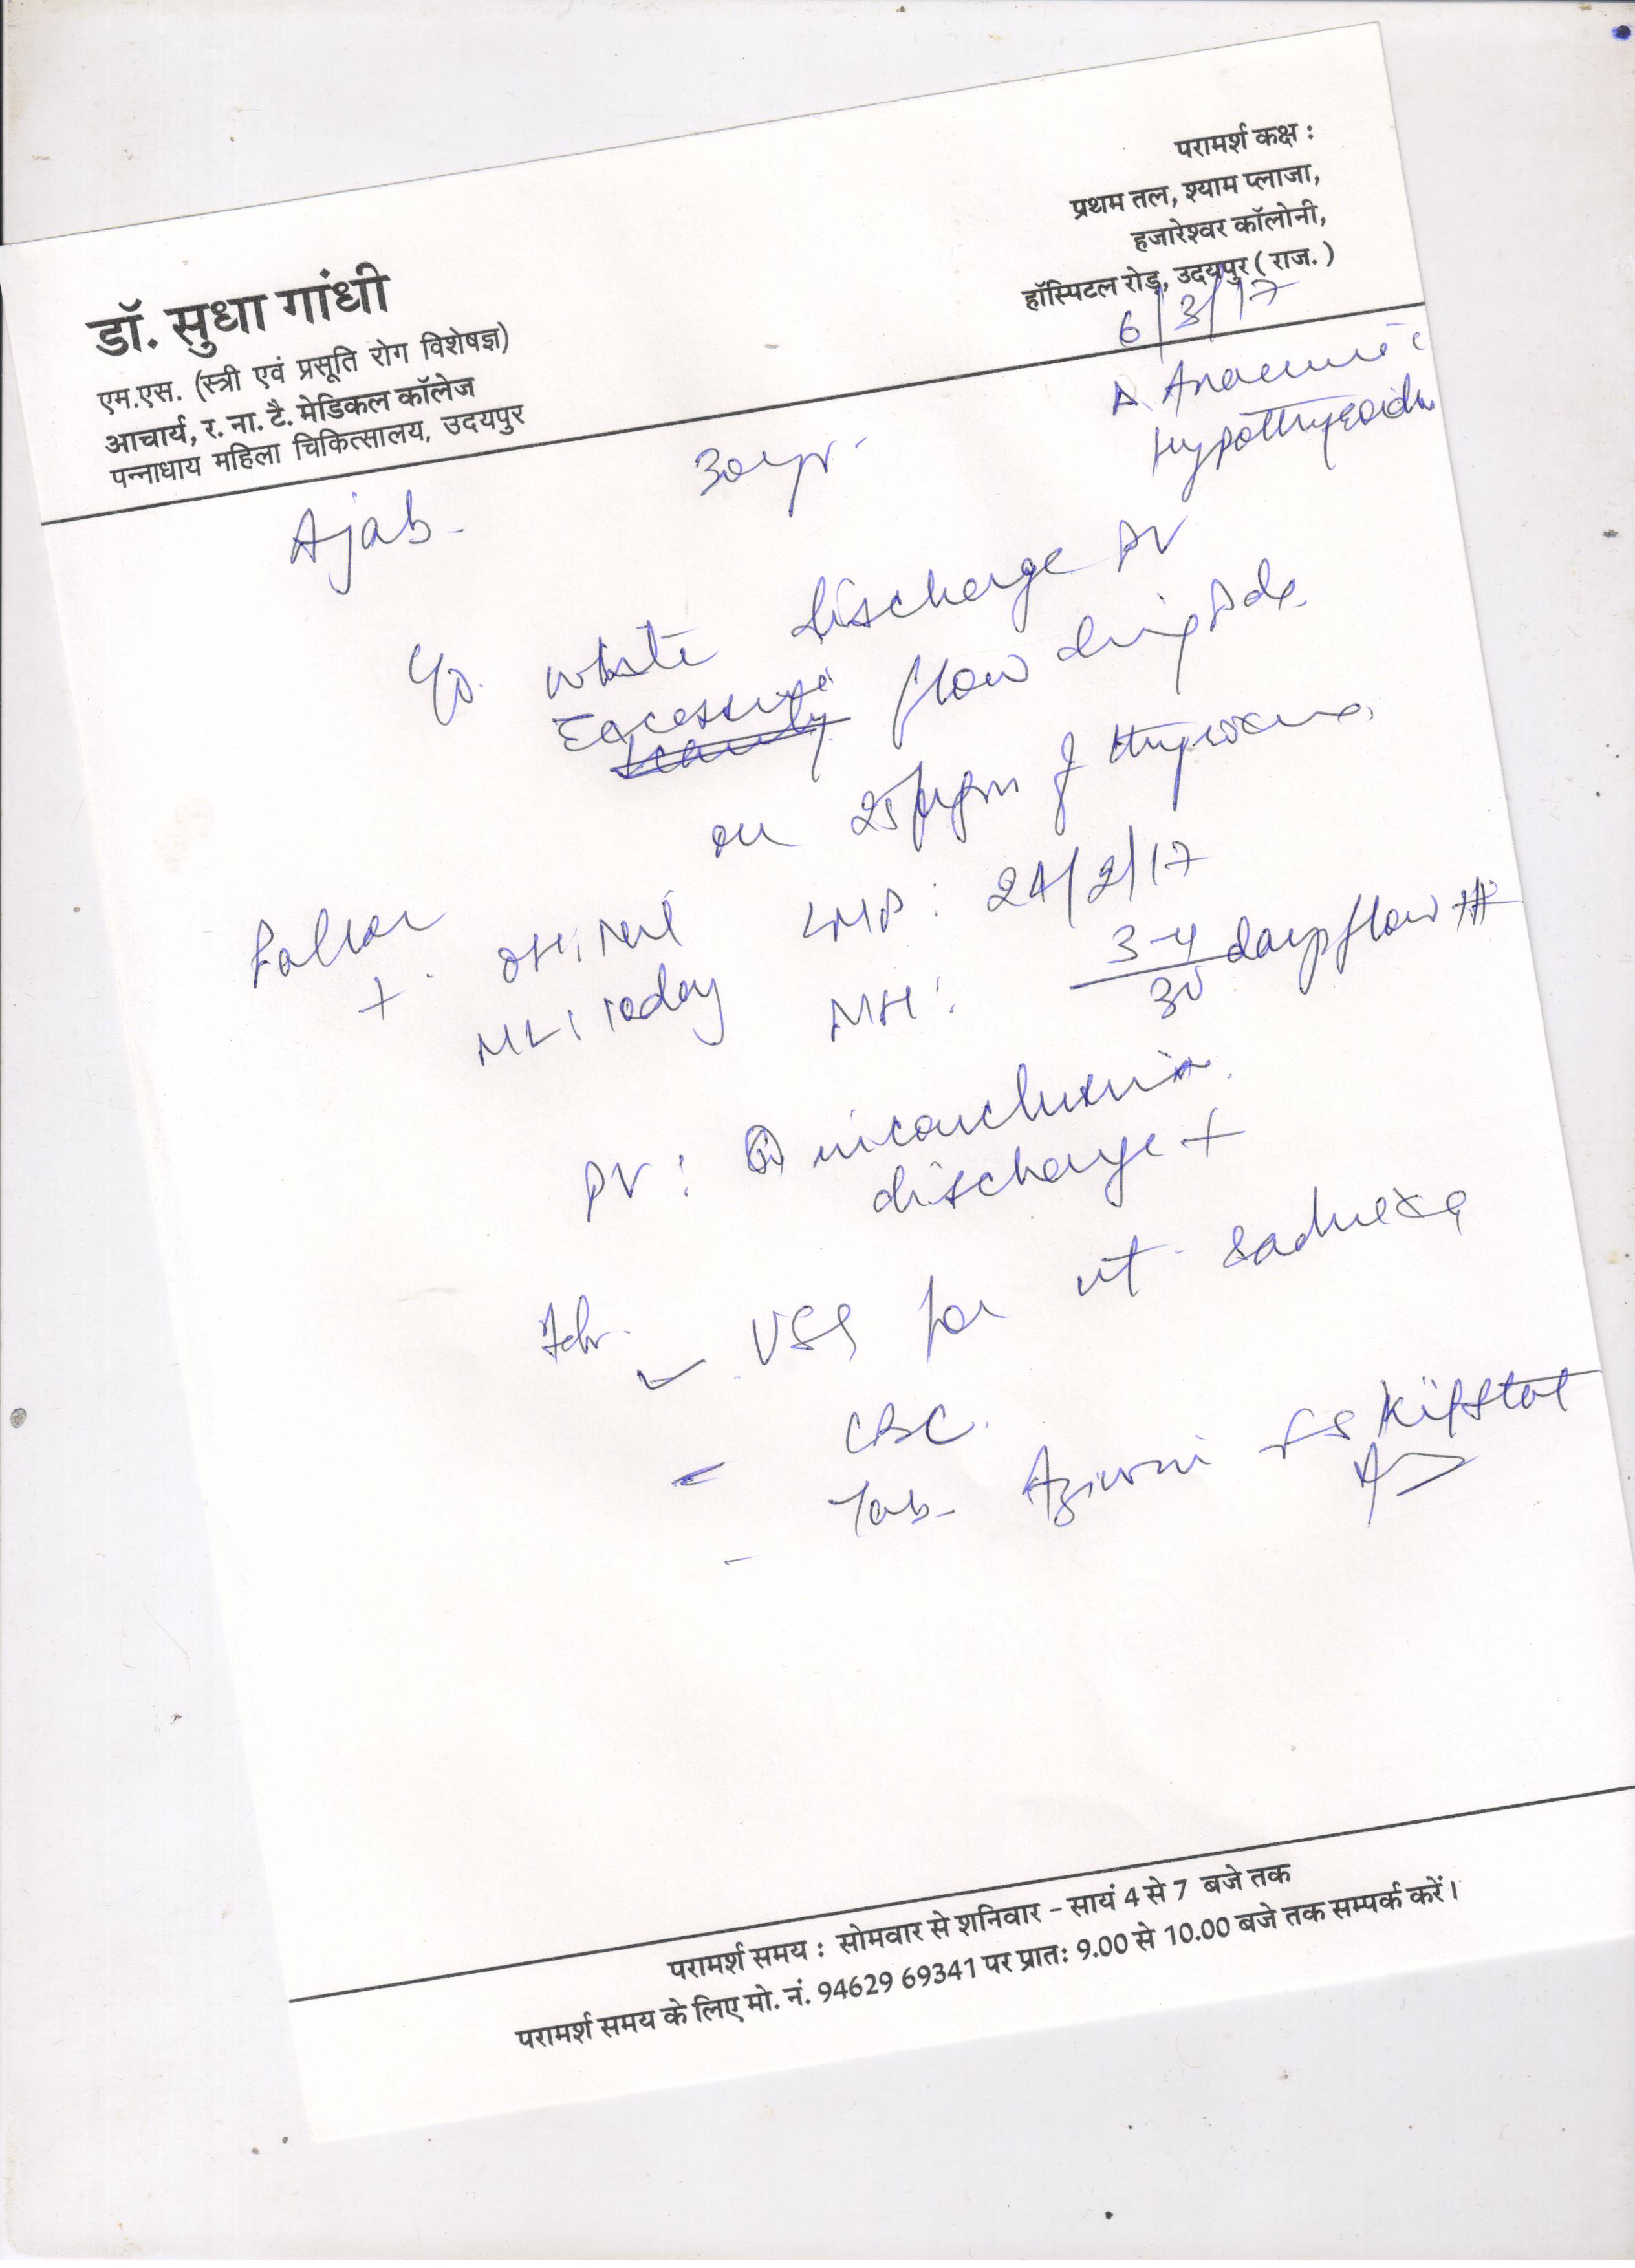 परामर्श कक्ष :
प्रथम तल, श्याम प्लाजा,
हजारेश्वर कॉलोनी,
हॉस्पिटल रोड़, उदयपुर ( राज. )
डॉ. सुधा गांधी
एम.एस. (स्त्री एवं प्रसूति रोग विशेषज्ञ)
आचार्य, र. ना. टै. मेडिकल कॉलेज
पन्नाधाय महिला चिकित्सालय, उदयपुर
6/3/17
Hypothyroidism
Ajab 30yr
C/o. white discharge PV
Excessive scanty flow during
on 25 of thyroxine
Pallor OH: LMP: 24/2/17
+ ML: 10day MH: 3-4/30 days flow
PV:
discharge +
Adv. USG for ut & adnexa
CBC.
Tab. FS Kit stat
परामर्श समय : सोमवार से शनिवार - सायं 4 से 7 बजे तक
परामर्श समय के लिए मो. नं. 94629 69341 पर प्रातः 9.00 से 10.00 बजे तक सम्पर्क करें।